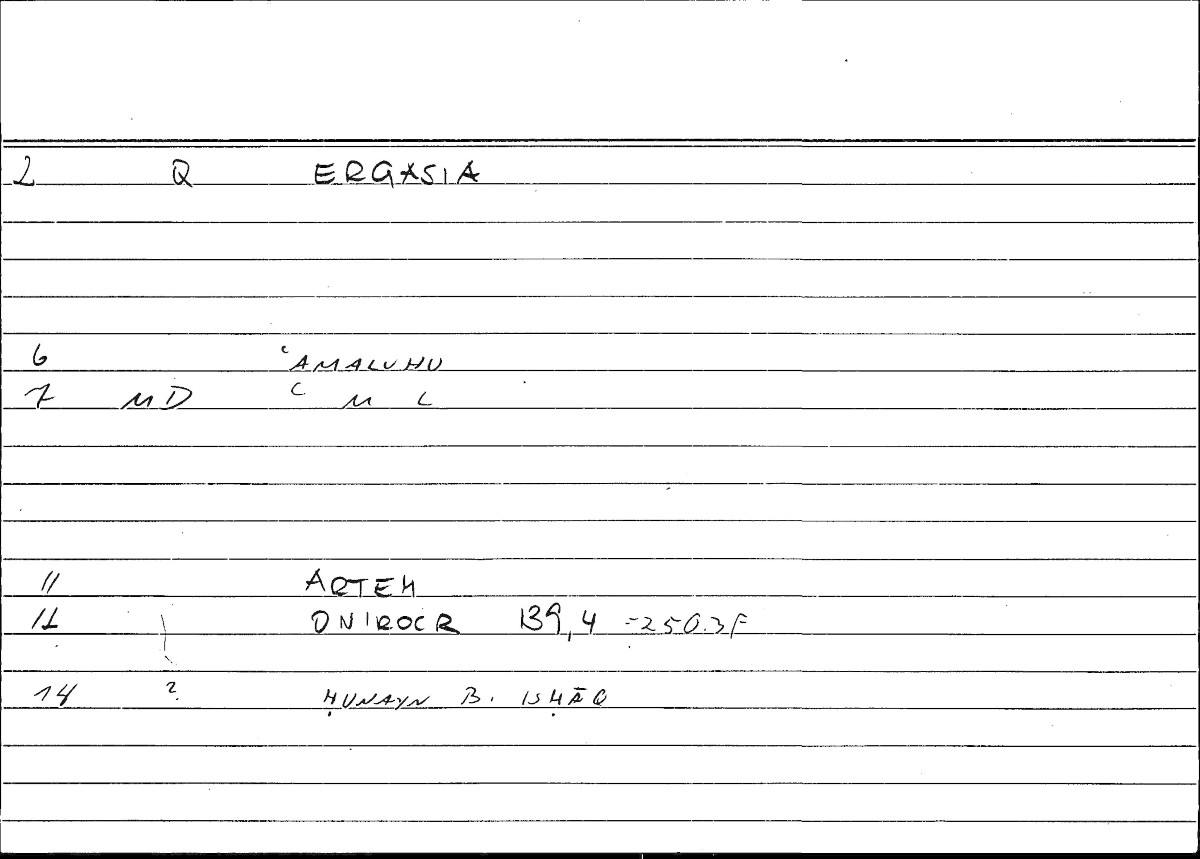 2 Q ERGASIA
6 ʿAMALUHU
7 MD ʿ M L
11 ARTEM
12 ONIROCR 139,4 =250.3F
14 ? ḤUNAYN B. ISḤĀQ